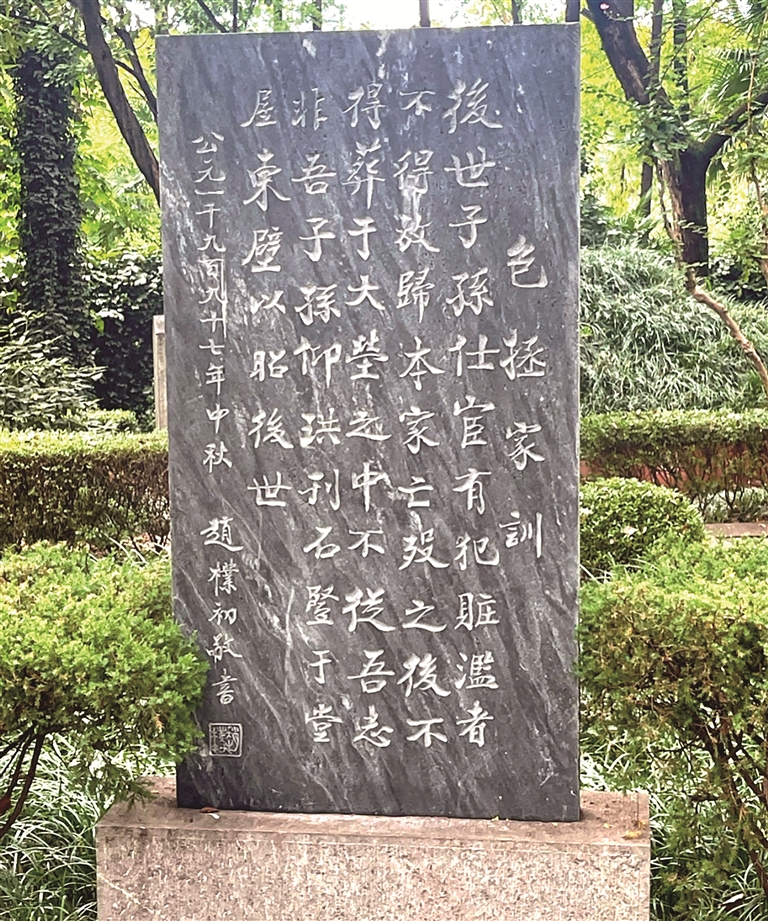 包拯家訓
後世子孫仕宦有犯賍濫者
不得放歸本家亡歿之後不
得葬于大塋之中不從吾志
非吾子孫仰珙刊石豎于堂
屋東壁以昭後世
公元一千九百九十七年中秋 趙樸初敬書